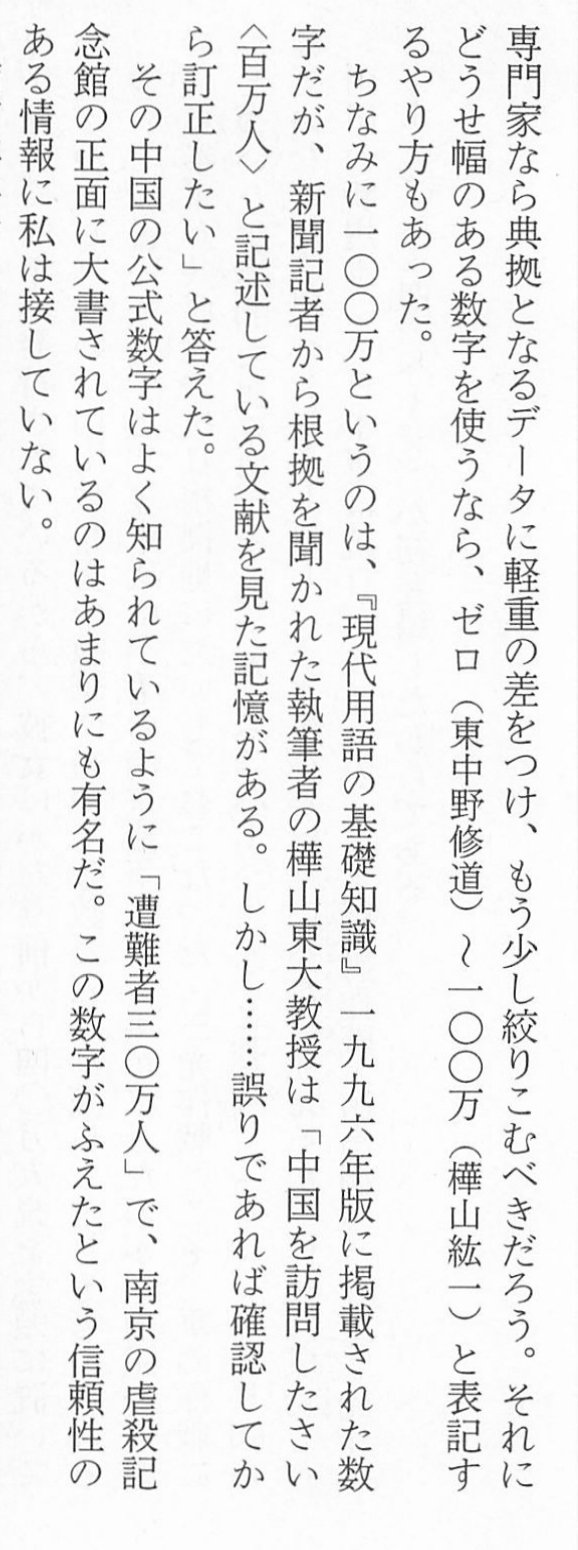 専門家なら典拠となるデータに軽重の差をつけ、もう少し絞りこむべきだろう。それに
どうせ幅のある数字を使うなら、ゼロ（東中野修道）～一〇〇万（樺山紘一）と表記す
るやり方もあった。
ちなみに一〇〇万というのは、『現代用語の基礎知識』一九九六年版に掲載された数
字だが、新聞記者から根拠を聞かれた執筆者の樺山東大教授は「中国を訪問したさい
〈百万人〉と記述している文献を見た記憶がある。しかし……誤りであれば確認してか
ら訂正したい」と答えた。
その中国の公式数字はよく知られているように「遭難者三〇万人」で、南京の虐殺記
念館の正面に大書されているのはあまりにも有名だ。この数字がふえたという信頼性の
ある情報に私は接していない。